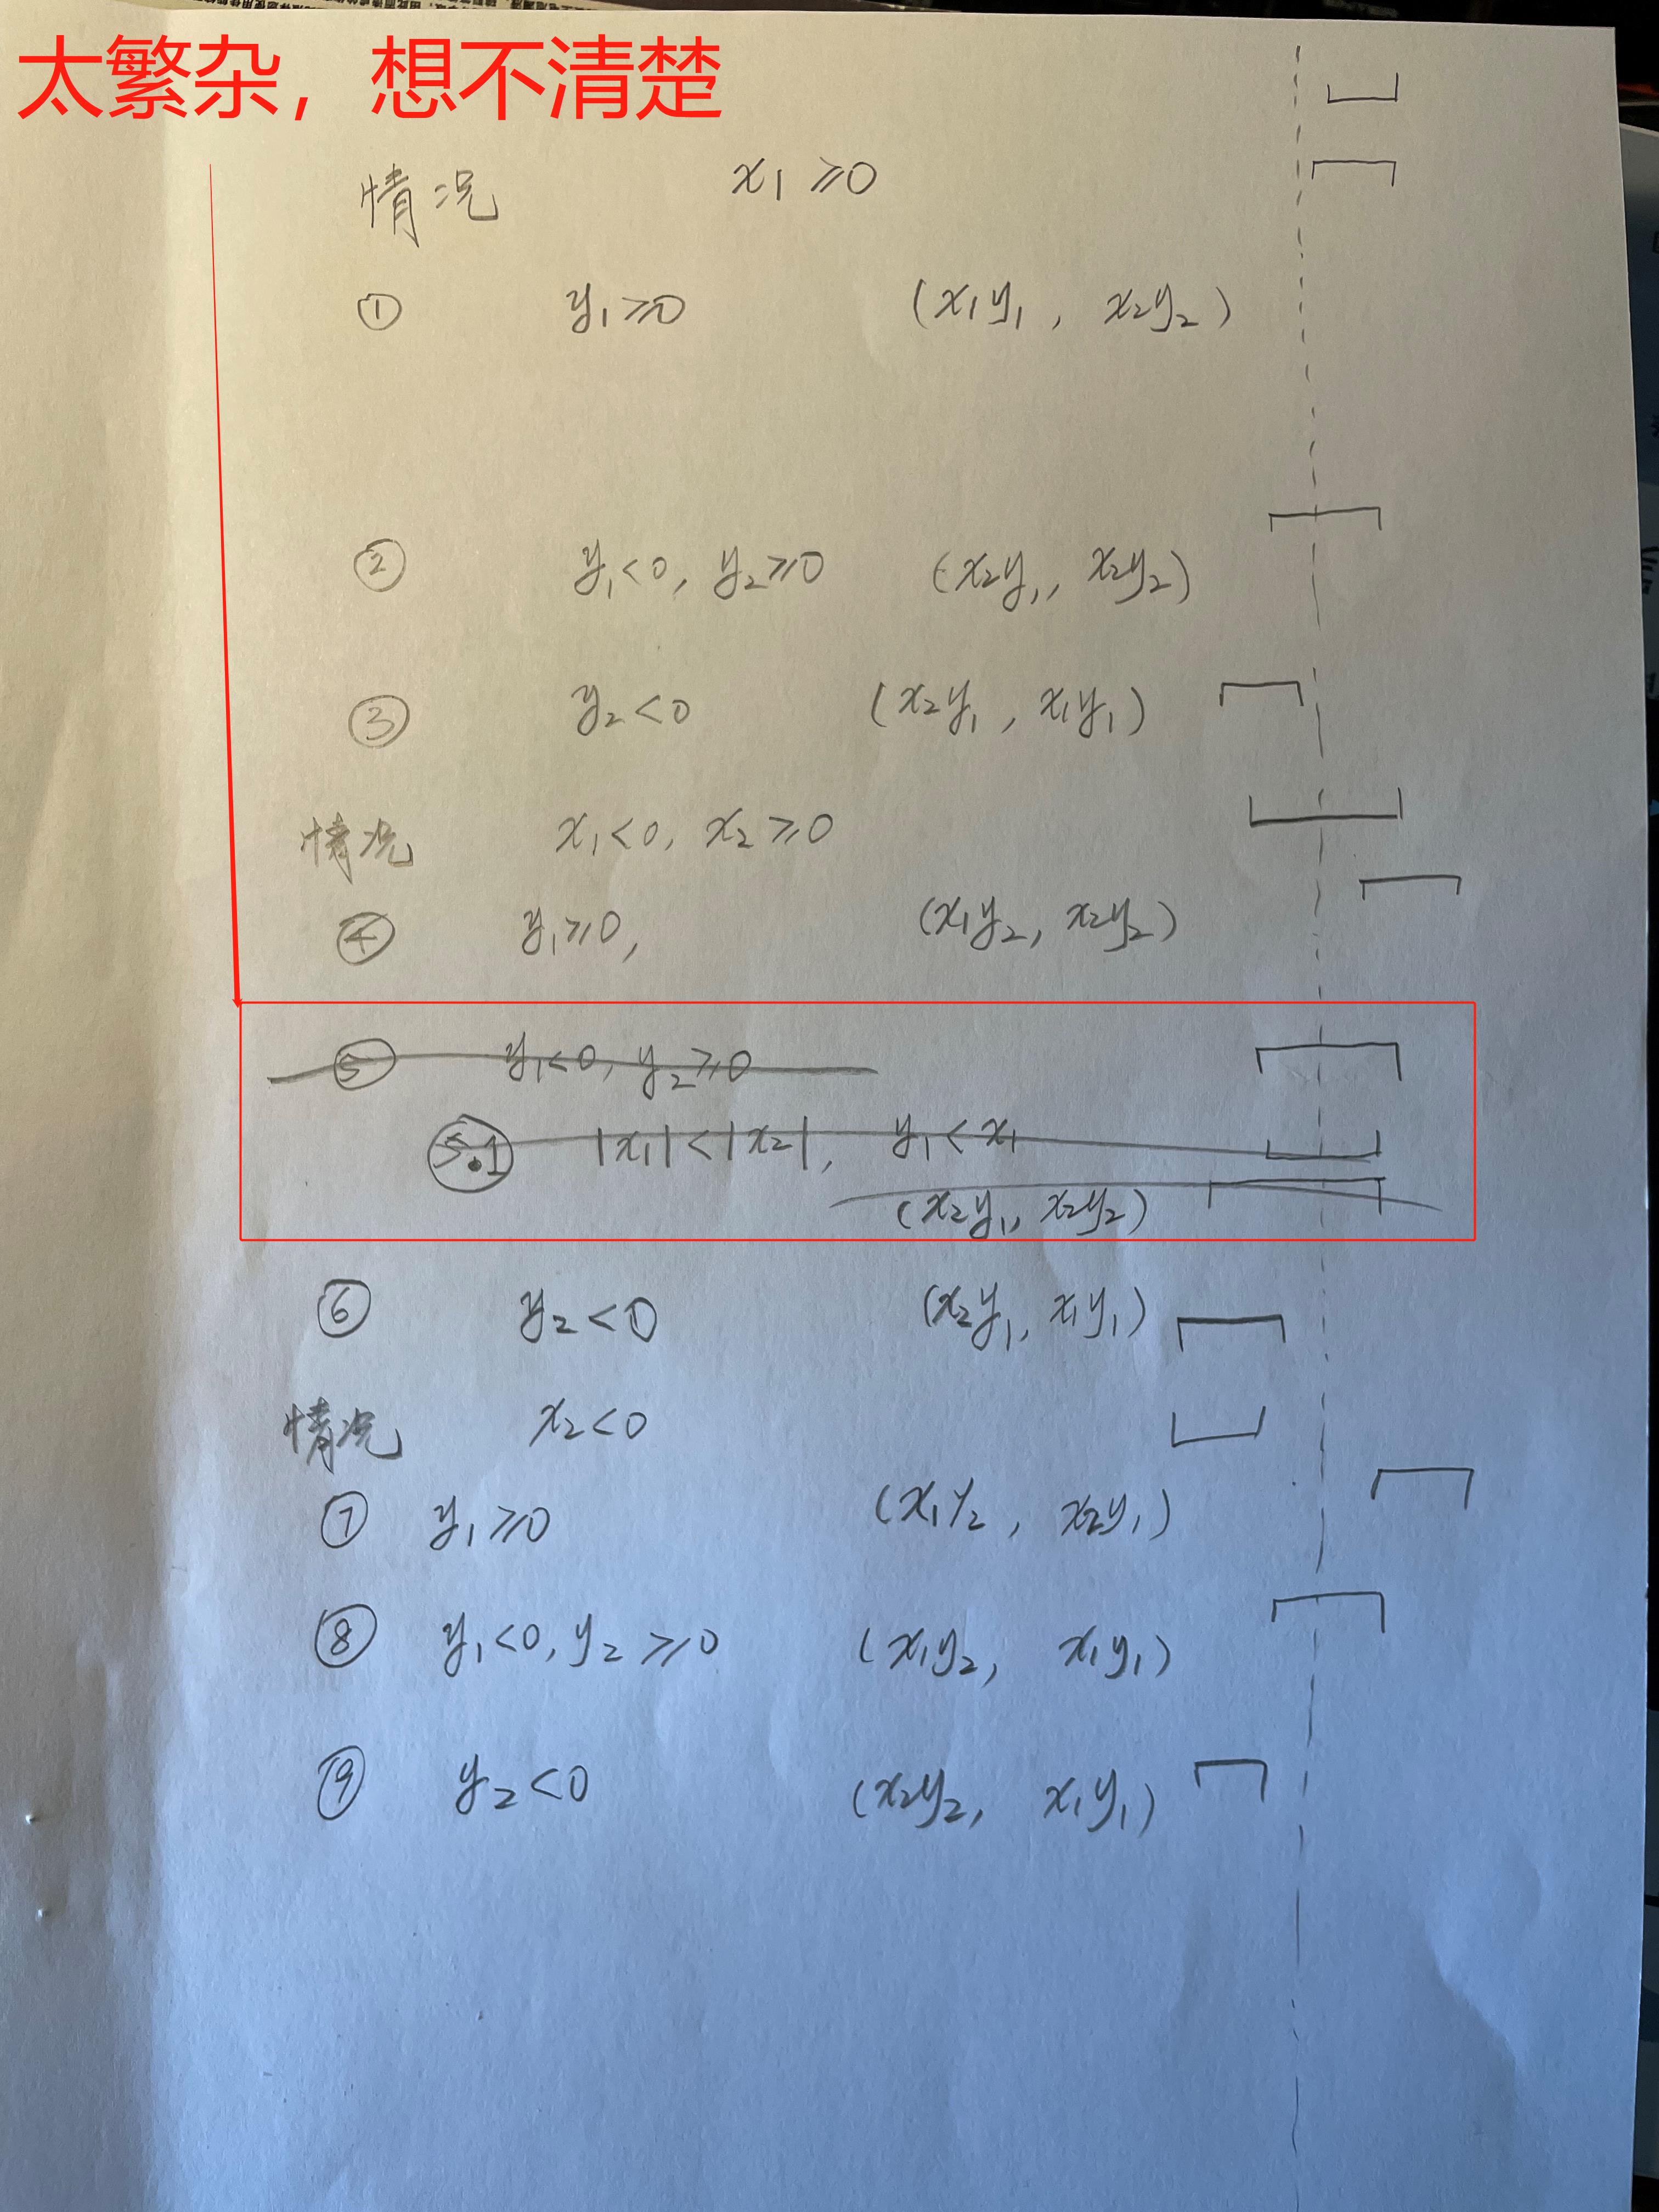 太繁杂，想不清楚
情况 x₁ ≥0
① y₁≥0 (x₁y₁, x₂y₂)
② y₁<0, y₂≥0 (x₂y₁, x₂y₂)
③ y₂<0 (x₂y₁, x₁y₁)
情况 x₁<0, x₂≥0
④ y₁≥0, (x₁y₂, x₂y₂)
⑤ y₁<0, y₂≥0
5.1 |x₁|<|x₂|, y₁<x₁
(x₂y₁, x₂y₂)
⑥ y₂<0 (x₂y₁, x₁y₁)
情况 x₂<0
⑦ y₁≥0 (x₁y₂, x₂y₁)
⑧ y₁<0, y₂≥0 (x₁y₂, x₁y₁)
⑨ y₂<0 (x₂y₂, x₁y₁)